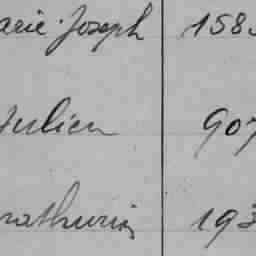 arie Joseph 158
Julien 907
rathurin 193